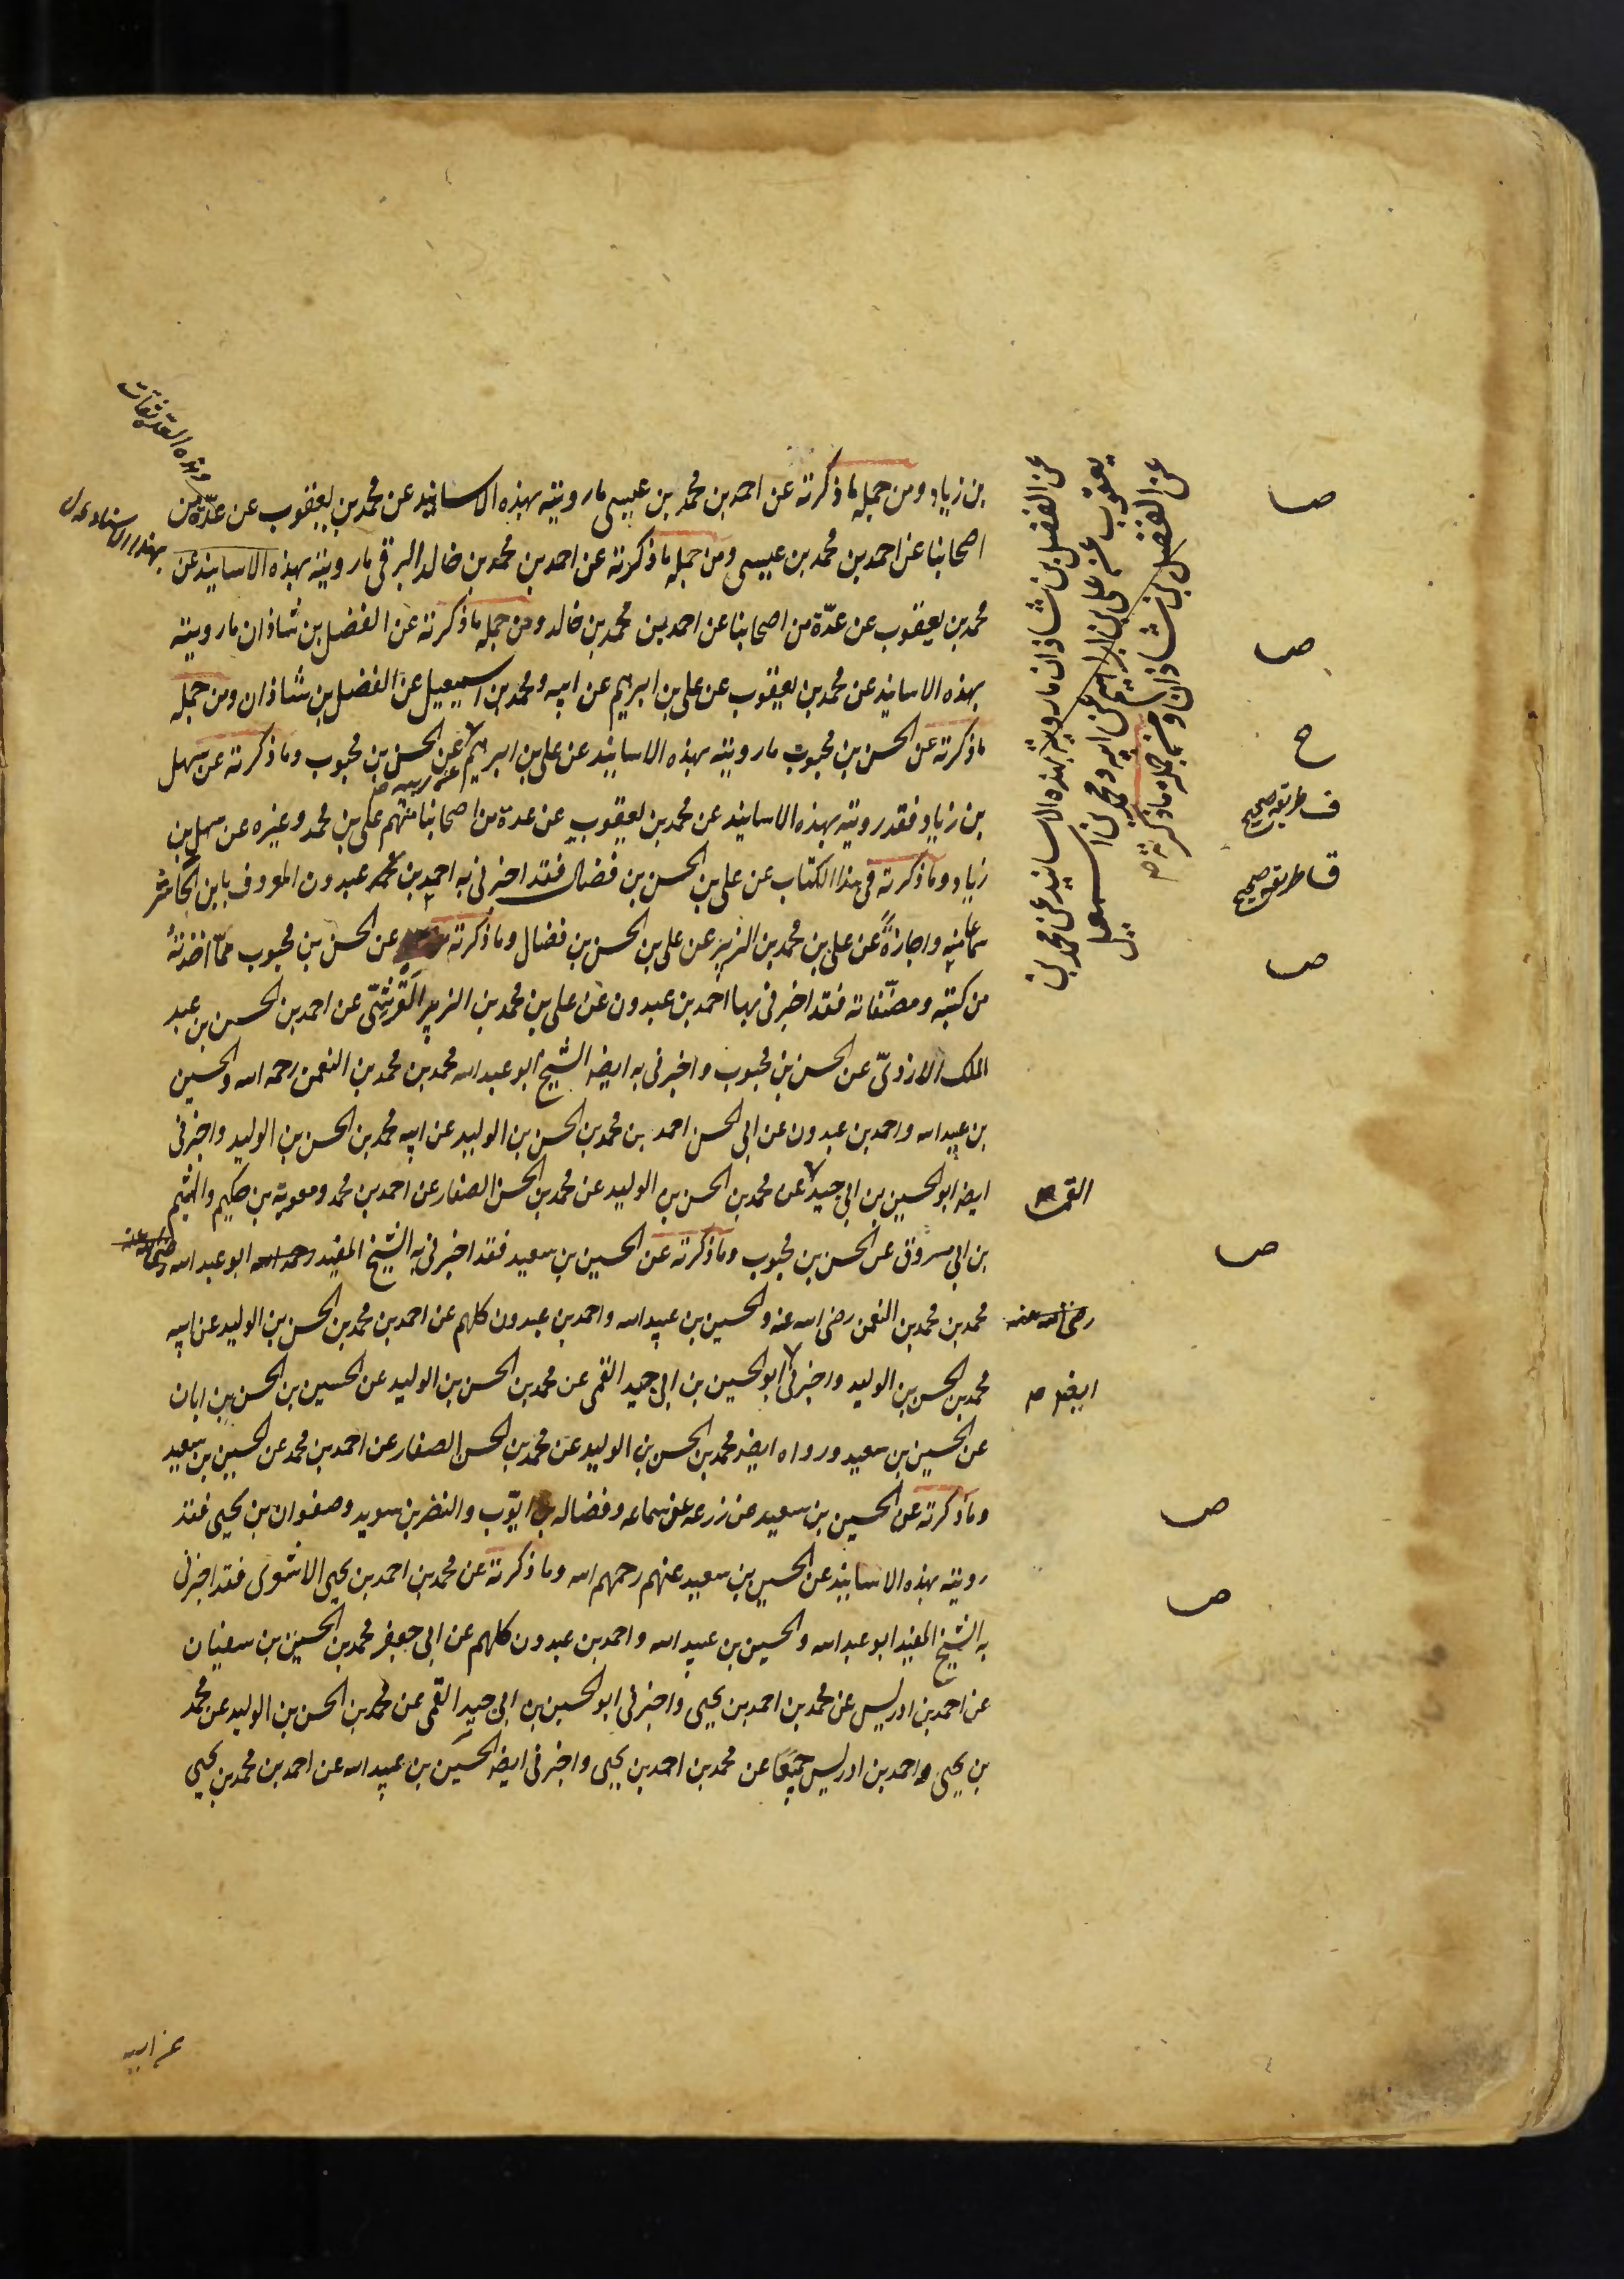 بن زياد ومن جمله ما ذكرته عن احمد بن محمد بن عيسى ما رويته بهذه الاسانيد عن محمد بن يعقوب عن عدّة من
اصحابنا عن احمد بن محمد بن عيسى ومن جمله ما ذكرته عن احمد بن محمد بن خالد البرقى ما رويته بهذه الاسانيد عن
محمد بن يعقوب عن عدّة من اصحابنا عن احمد بن محمد بن خالد ومن جمله ما ذكرته عن الفضل بن شاذان ما رويته
بهذه الاسانيد عن محمد بن يعقوب عن على بن ابرهيم عن ابيه ومحمد بن اسمعيل عن الفضل بن شاذان ومن جمله
ما ذكرته عن الحسن بن محبوب ما رويته بهذه الاسانيد عن على بن ابرهيم عن ابيه عن الحسن بن محبوب وما ذكرته عن سهل
بن زياد فقد رويته بهذه الاسانيد عن محمد بن يعقوب عن عدة من اصحابنا منهم على بن محمد وغيره عن سهل بن
زياد وما ذكرته فى هذا الكتاب عن على بن الحسن بن فضال فقد اخبرنى به احمد بن عبدون المعروف بابن الحاشر
سماعا منه واجازةً عن على بن محمد بن الزبير عن على بن الحسن بن فضال وما ذكرته عن الحسن بن محبوب ممّا اخذته
من كتبه ومصنّفاته فقد اخبرنى بها احمد بن عبدون عن على بن محمد بن الزبير القرشىّ عن احمد بن الحسين بن عبد
الملك الازدىّ عن الحسن بن محبوب واخبرنى به ايضا الشيخ ابو عبد الله محمد بن محمد بن النعمن رحمه الله والحسين
بن عبيد الله واحمد بن عبدون عن ابى الحسن احمد بن محمد بن الحسن بن الوليد عن ابيه محمد بن الحسن بن الوليد واخبرنى
ايضا ابو الحسين بن ابى جيد عن محمد بن الحسن بن الوليد عن محمد بن الحسن الصفار عن احمد بن محمد ومعوية بن حكيم والهيثم
القمى
بن ابى مسروق عن الحسن بن محبوب وما ذكرته عن الحسين بن سعيد فقد اخبرنى به الشيخ المفيد رحمه الله ابو عبد الله
رضى الله عنه
محمد بن محمد بن النعمن رضى الله عنه والحسين بن عبيد الله واحمد بن عبدون كلهم عن احمد بن محمد بن الحسن بن الوليد عن ابيه
محمد بن الحسن بن الوليد واخبرنى ابو الحسين بن ابى جيد القمى عن محمد بن الحسن بن الوليد عن الحسين بن الحسن بن ابان
ايضا
عن الحسين بن سعيد ورواه ايضا محمد بن الحسن بن الوليد عن محمد بن الحسن الصفار عن احمد بن محمد عن الحسين بن سعيد
وما ذكرته عن الحسين بن سعيد عن زرعه عن سماعه وفضاله بن ايوّب والنضر بن سويد وصفوان بن يحيى فقد
رويته بهذه الاسانيد عن الحسين بن سعيد عنهم رحمهم الله وما ذكرته عن محمد بن احمد بن يحيى الاشعرى فقد اخبرنى
به الشيخ المفيد ابو عبد الله والحسين بن عبيد الله واحمد بن عبدون كلهم عن ابى جعفر محمد بن الحسين بن سفيان
عن احمد بن ادريس عن محمد بن احمد بن يحيى واخبرنى ابو الحسين بن ابى جيد القمى عن محمد بن الحسن بن الوليد عن محمد
بن يحيى واحمد بن ادريس جميعًا عن محمد بن احمد بن يحيى واخبرنى ايضا الحسين بن عبيد الله عن احمد بن محمد بن يحيى
عن ابيه
عن الفضل بن شاذان ما رويته بهذه الاسانيد عن محمد بن
يعقوب عن على بن ابراهيم عن ابيه ومحمد بن اسمعيل
عن الفضل بن شاذان ومن جمله ما ذكرته
ص
ص
ح
ف طريقه صحيح
ق طريقه صحيح
ص
ص
ص
ص